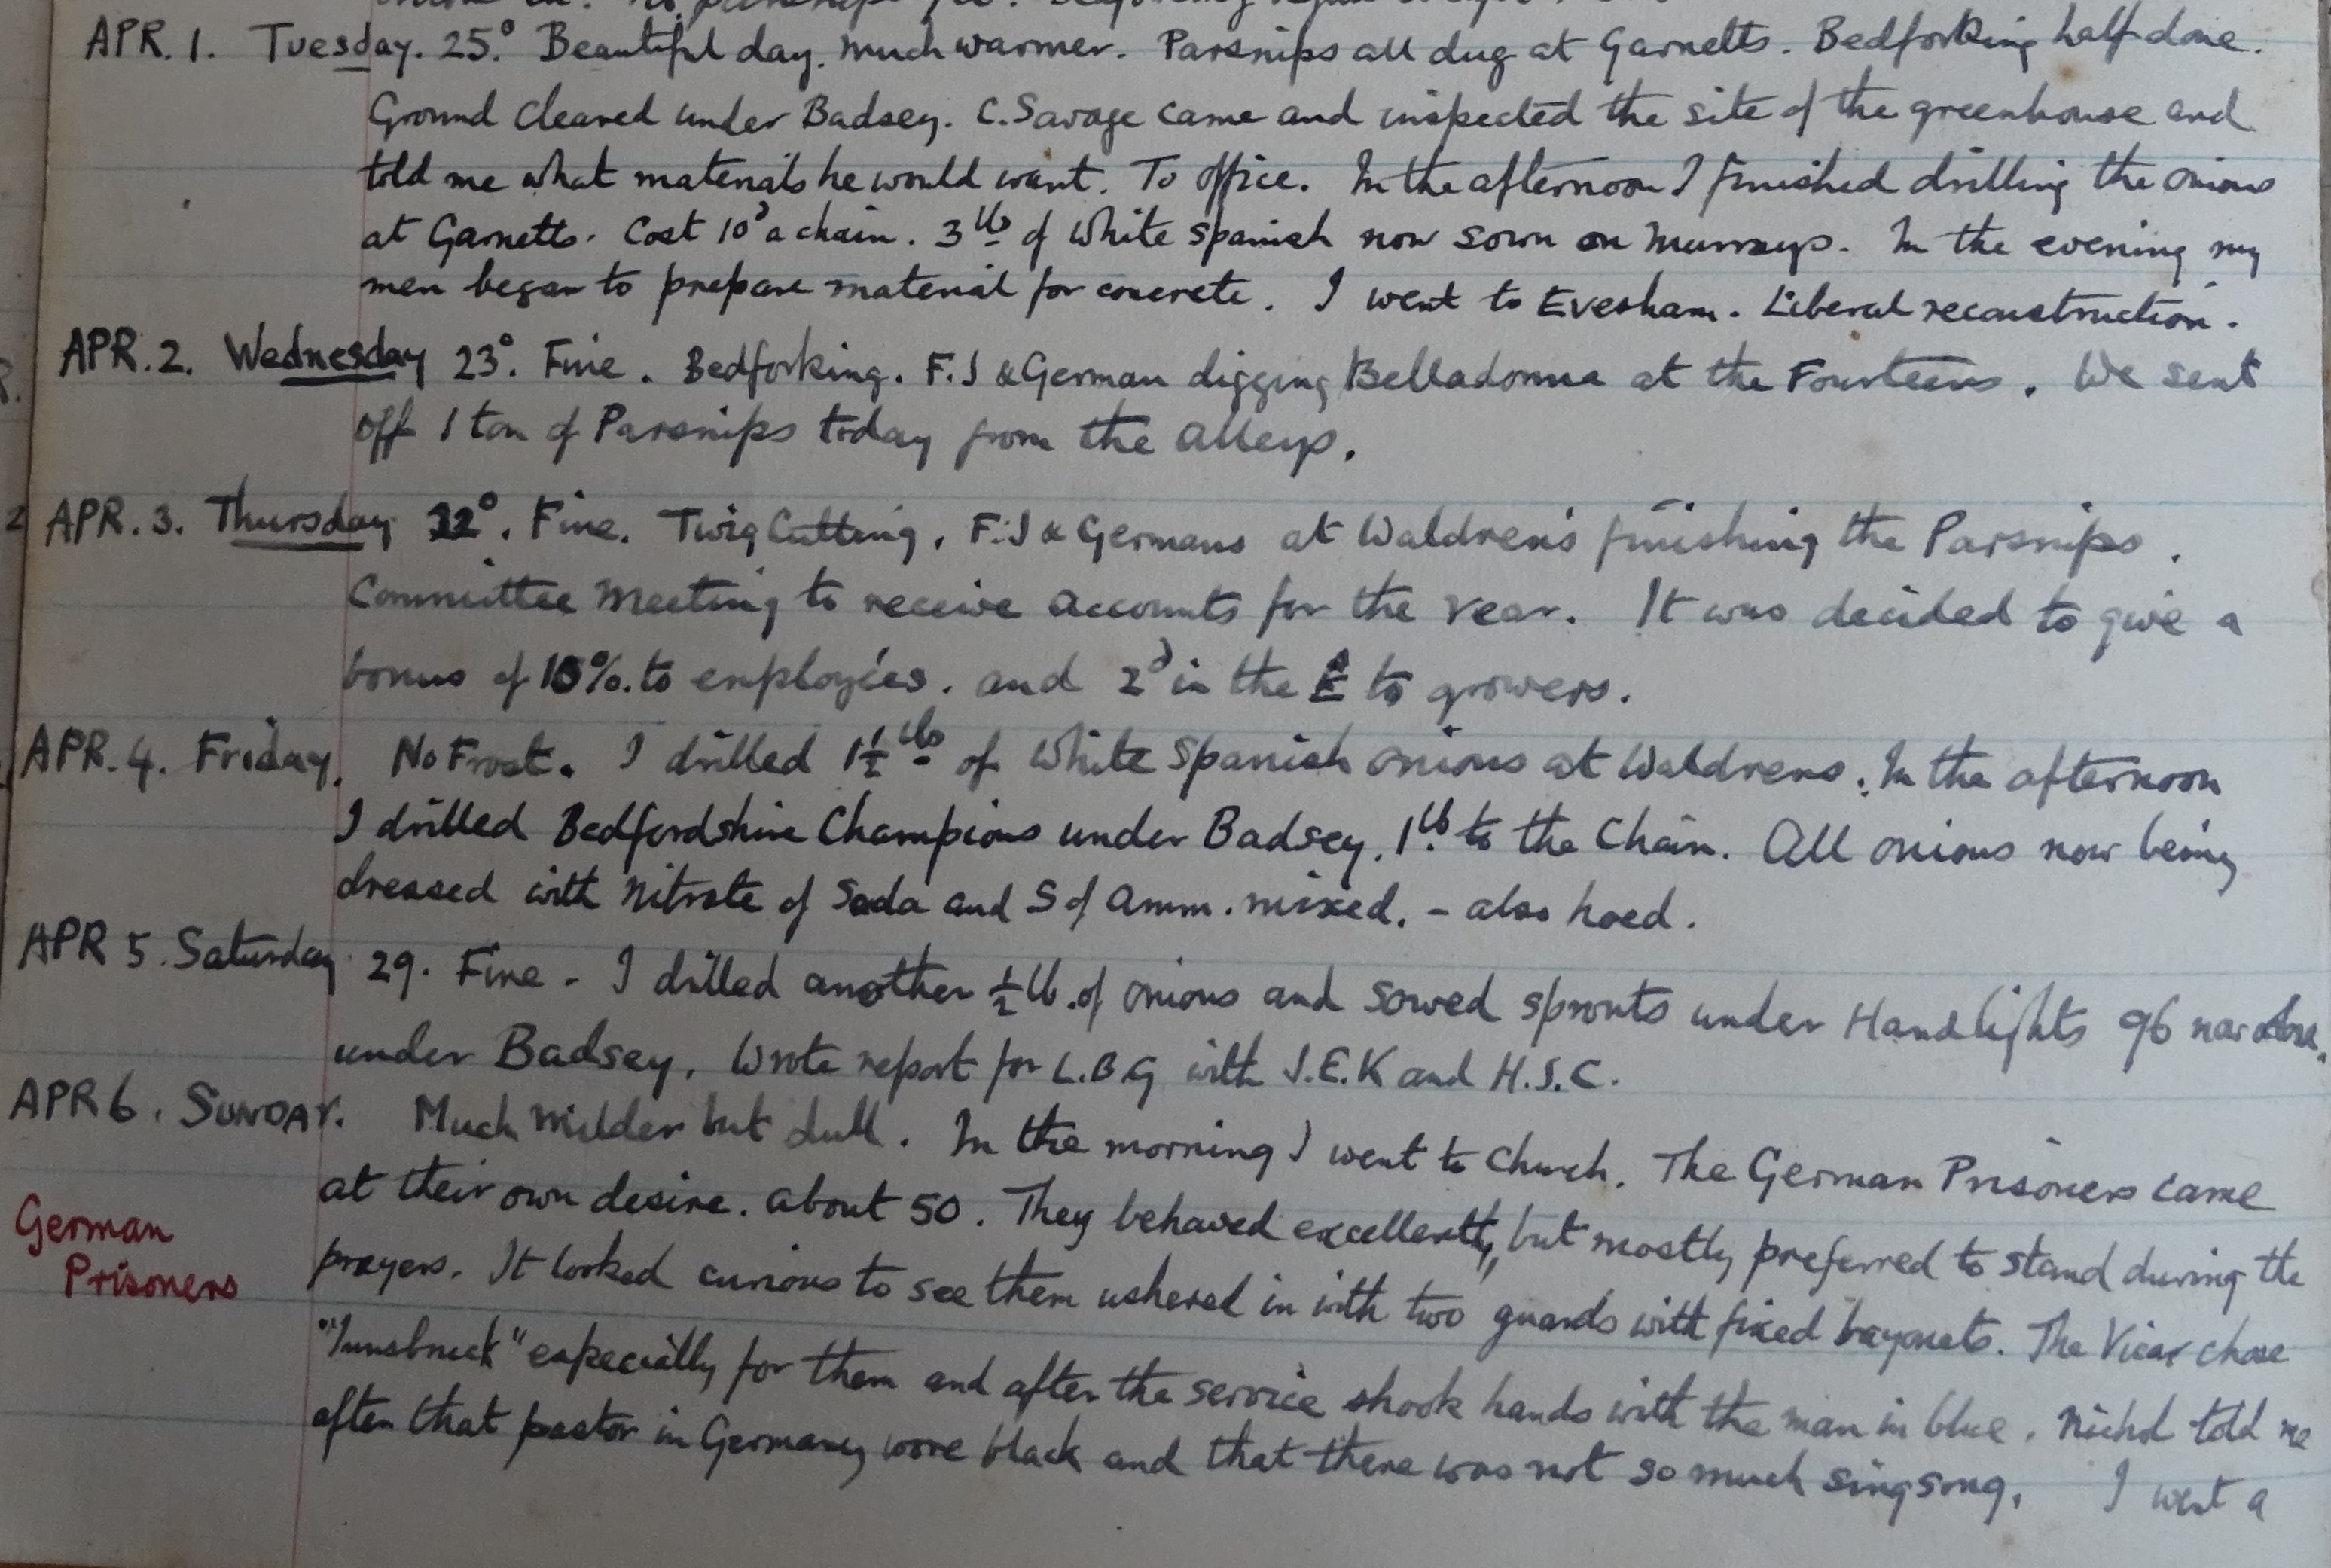 APR. 1. Tuesday. 25.° Beautiful day. Much warmer. Parsnips all dug at Garnetts. Bedforking half done.
Ground cleared under Badsey. C. Savage came and inspected the site of the greenhouse and
told me what materials he would want. To office. In the afternoon I finished drilling the onions
at Garnetts. Cost 10d a chain. 3 lbs of White Spanish now sown on Murrays. In the evening my
men began to prepare material for concrete. I went to Evesham. Liberal reconstruction.
APR. 2. Wednesday 23°. Fine. Bedforking. F.J & German digging Belladonna at the Fourteens. We sent
off 1 ton of Parsnips today from the alleys.
APR. 3. Thursday 32°. Fine. Twig Cutting. F.J & Germans at Waldrens finishing the Parsnips.
Committee Meeting to receive accounts for the year. It was decided to give a
bonus of 15%. to employées. and 2d in the £ to growers.
APR. 4. Friday. No Frost. I drilled 1½ lbs of White Spanish onions at Waldrens. In the afternoon
I drilled Bedfordshire Champions under Badsey. 1 lb to the Chain. All onions now being
dressed with Nitrate of Soda and S of Amm. mixed. - also hoed.
APR 5. Saturday 29. Fine - I drilled another ½ lb. of onions and sowed sprouts under Handlights 96 now done.
under Badsey. Wrote report for L.B.G with J.E.K and H.S.C.
APR 6. SUNDAY. Much milder but dull. In the morning I went to Church. The German Prisoners came
at their own desire. about 50. They behaved excellently, but mostly preferred to stand during the
German
Prisoners
prayers. It looked curious to see them ushered in with two guards with fixed bayonets. The Vicar chose
"Innsbruck" especially for them and after the service shook hands with the man in blue. Nichol told me
after that pastor in Germany wore black and that there was not so much singsong. I went a